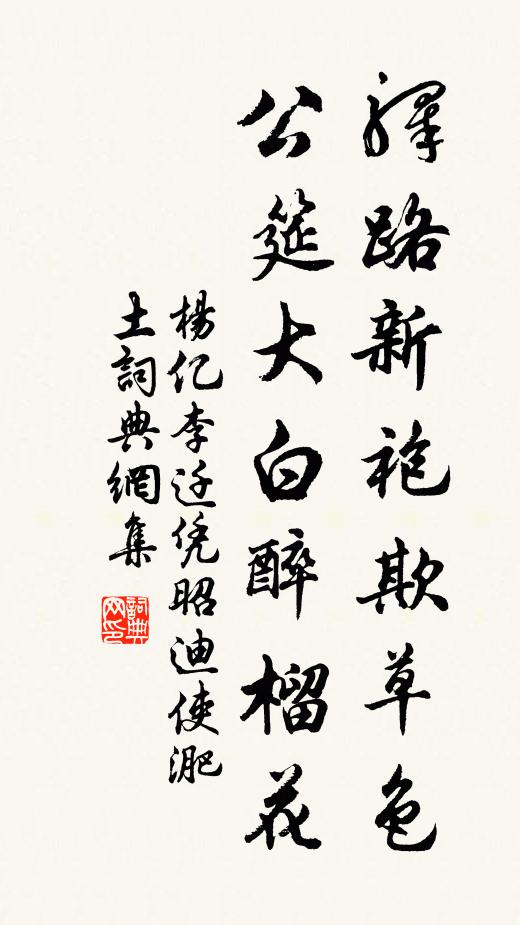 驛路新袍欺草色
公筵大白醉榴花
楊亿李迁凭昭迪使淝
土詞典網集
詞典网印